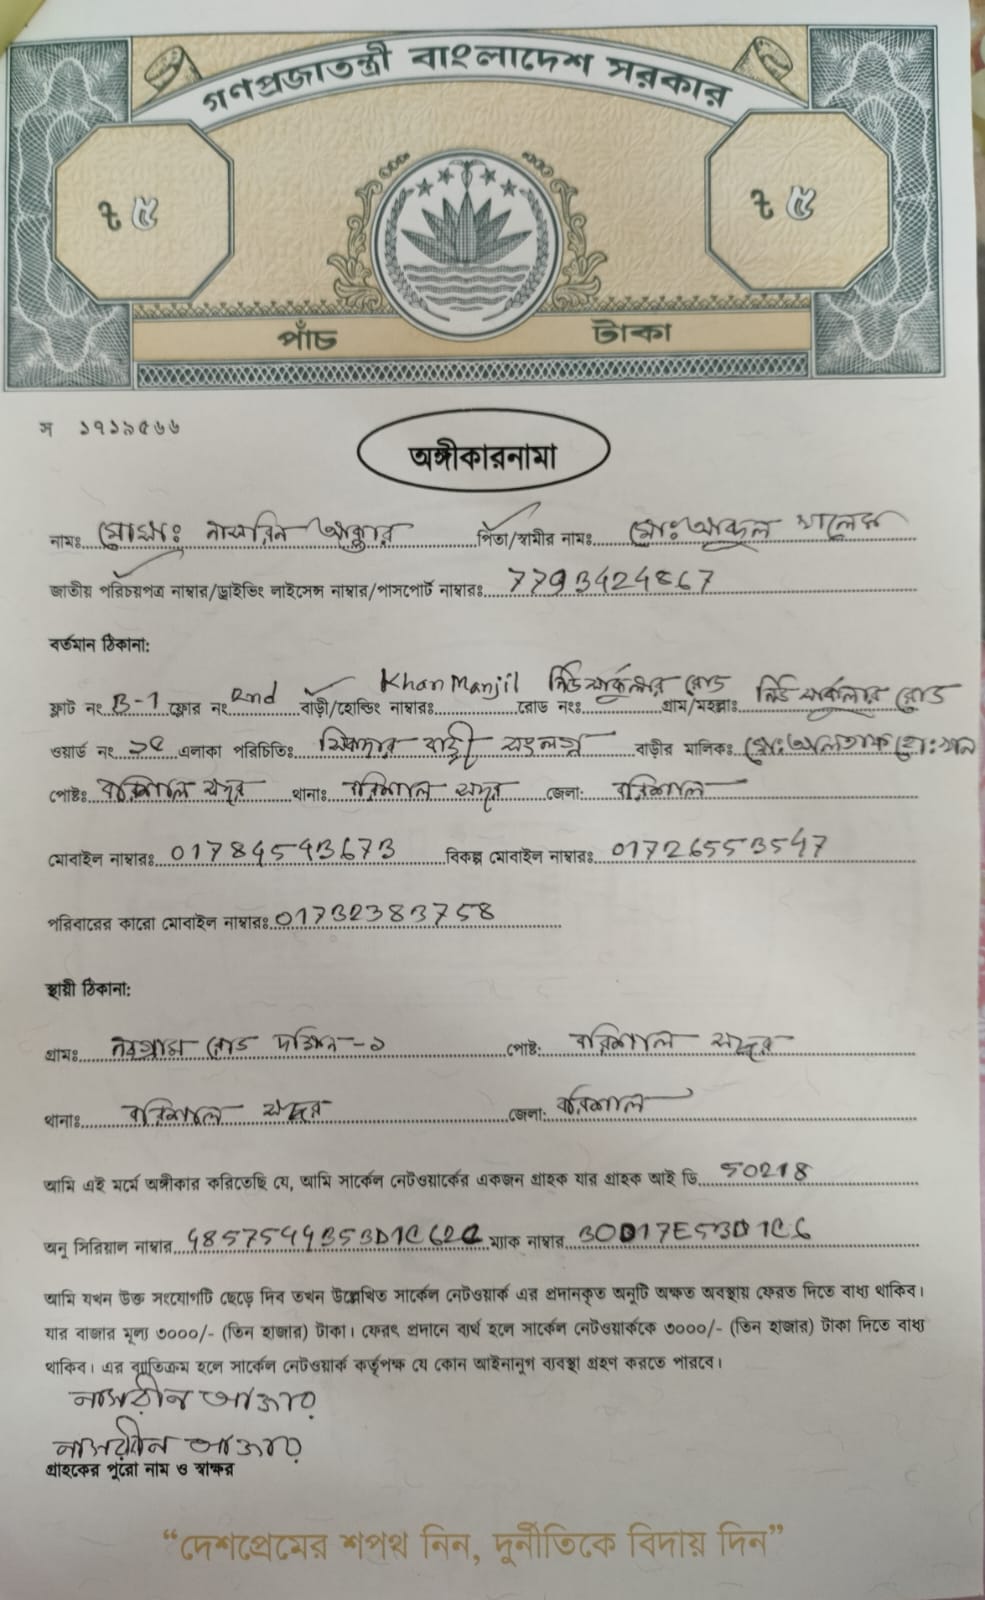 গণপ্রজাতন্ত্রী বাংলাদেশ সরকার
৳ ৫ ৳ ৫
পাঁচ টাকা
স ১৭১৯৫৬৬
অঙ্গীকারনামা
নামঃ মোসাঃ নাসরিন আক্তার পিতা/স্বামীর নামঃ মোঃ আব্দুল খালেক
জাতীয় পরিচয়পত্র নাম্বার/ড্রাইভিং লাইসেন্স নাম্বার/পাসপোর্ট নাম্বারঃ 7793424867
বর্তমান ঠিকানা:
ফ্লাট নং B-1 ফ্লোর নং 2nd বাড়ী/হোল্ডিং নাম্বারঃ Khan Manjil রোড নংঃ নিউ সার্কুলার রোড গ্রাম/মহল্লাঃ নিউ সার্কুলার রোড
ওয়ার্ড নং এলাকা পরিচিতিঃ সিকদার বাড়ী সংলগ্ন বাড়ীর মালিকঃ মোঃ আলতাফ হোঃ খান
পোষ্টঃ বরিশাল সদর থানাঃ বরিশাল সদর জেলা: বরিশাল
মোবাইল নাম্বারঃ 01784543673 বিকল্প মোবাইল নাম্বারঃ 01726553547
পরিবারের কারো মোবাইল নাম্বারঃ 01732383758
স্থায়ী ঠিকানা:
গ্রামঃ নবগ্রাম রোড দক্ষিন-১ পোষ্ট: বরিশাল সদর
থানাঃ বরিশাল সদর জেলা: বরিশাল
আমি এই মর্মে অঙ্গীকার করিতেছি যে, আমি সার্কেল নেটওয়ার্কের একজন গ্রাহক যার গ্রাহক আই ডি 50218
অনু সিরিয়াল নাম্বার 48575443530D1C62C ম্যাক নাম্বার 30D17E53D1C6
আমি যখন উক্ত সংযোগটি ছেড়ে দিব তখন উল্লেখিত সার্কেল নেটওয়ার্ক এর প্রদানকৃত অনুটি অক্ষত অবস্থায় ফেরত দিতে বাধ্য থাকিব।
যার বাজার মূল্য ৩০০০/- (তিন হাজার) টাকা। ফেরৎ প্রদানে ব্যর্থ হলে সার্কেল নেটওয়ার্ককে ৩০০০/- (তিন হাজার) টাকা দিতে বাধ্য
থাকিব। এর ব্যতিক্রম হলে সার্কেল নেটওয়ার্ক কর্তৃপক্ষ যে কোন আইনানুগ ব্যবস্থা গ্রহণ করতে পারবে।
নাসরীন আক্তার
নাসরীন আক্তার
গ্রাহকের পুরো নাম ও স্বাক্ষর
“দেশপ্রেমের শপথ নিন, দুর্নীতিকে বিদায় দিন”